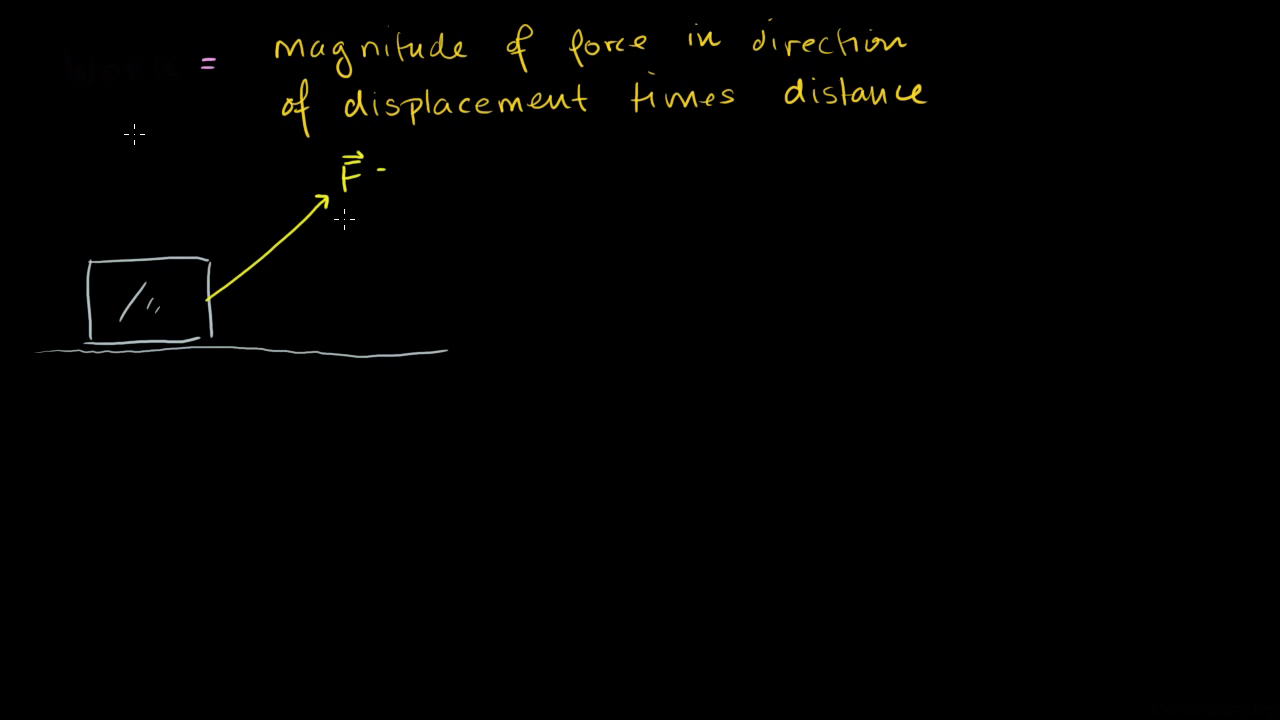 = magnitude of force in direction
of displacement times distance
F⃗ -